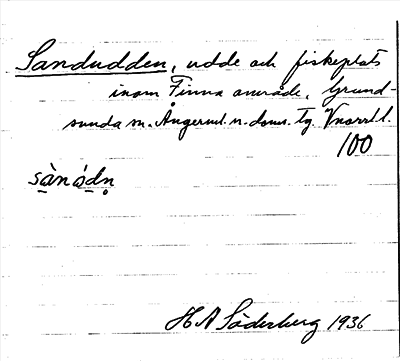 Sandudden, udde och fiskeplats
inom Finna område, Grund-
sunda sn. Ångerml. n. doms. tg Vnorrl. l.
100
sànádn
H A Söderberg 1936